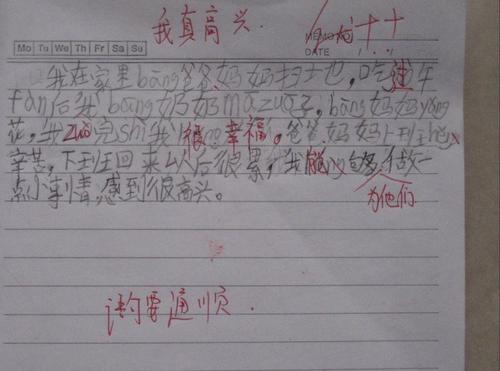 我真高兴.
好++
MEMO NO.
DATE / /
Mo Tu We Th Fr Sa Su
我在家里bāng爸爸妈妈扫土也,吃过午
fàn后我bāng妈妈mā zuō子,bāng妈妈
花,我zuò完shì我很幸福。爸爸妈妈上班
辛苦,下班回来以后很累,我能够做一
点小事情,感到很高兴。
为他们
语句要通顺.